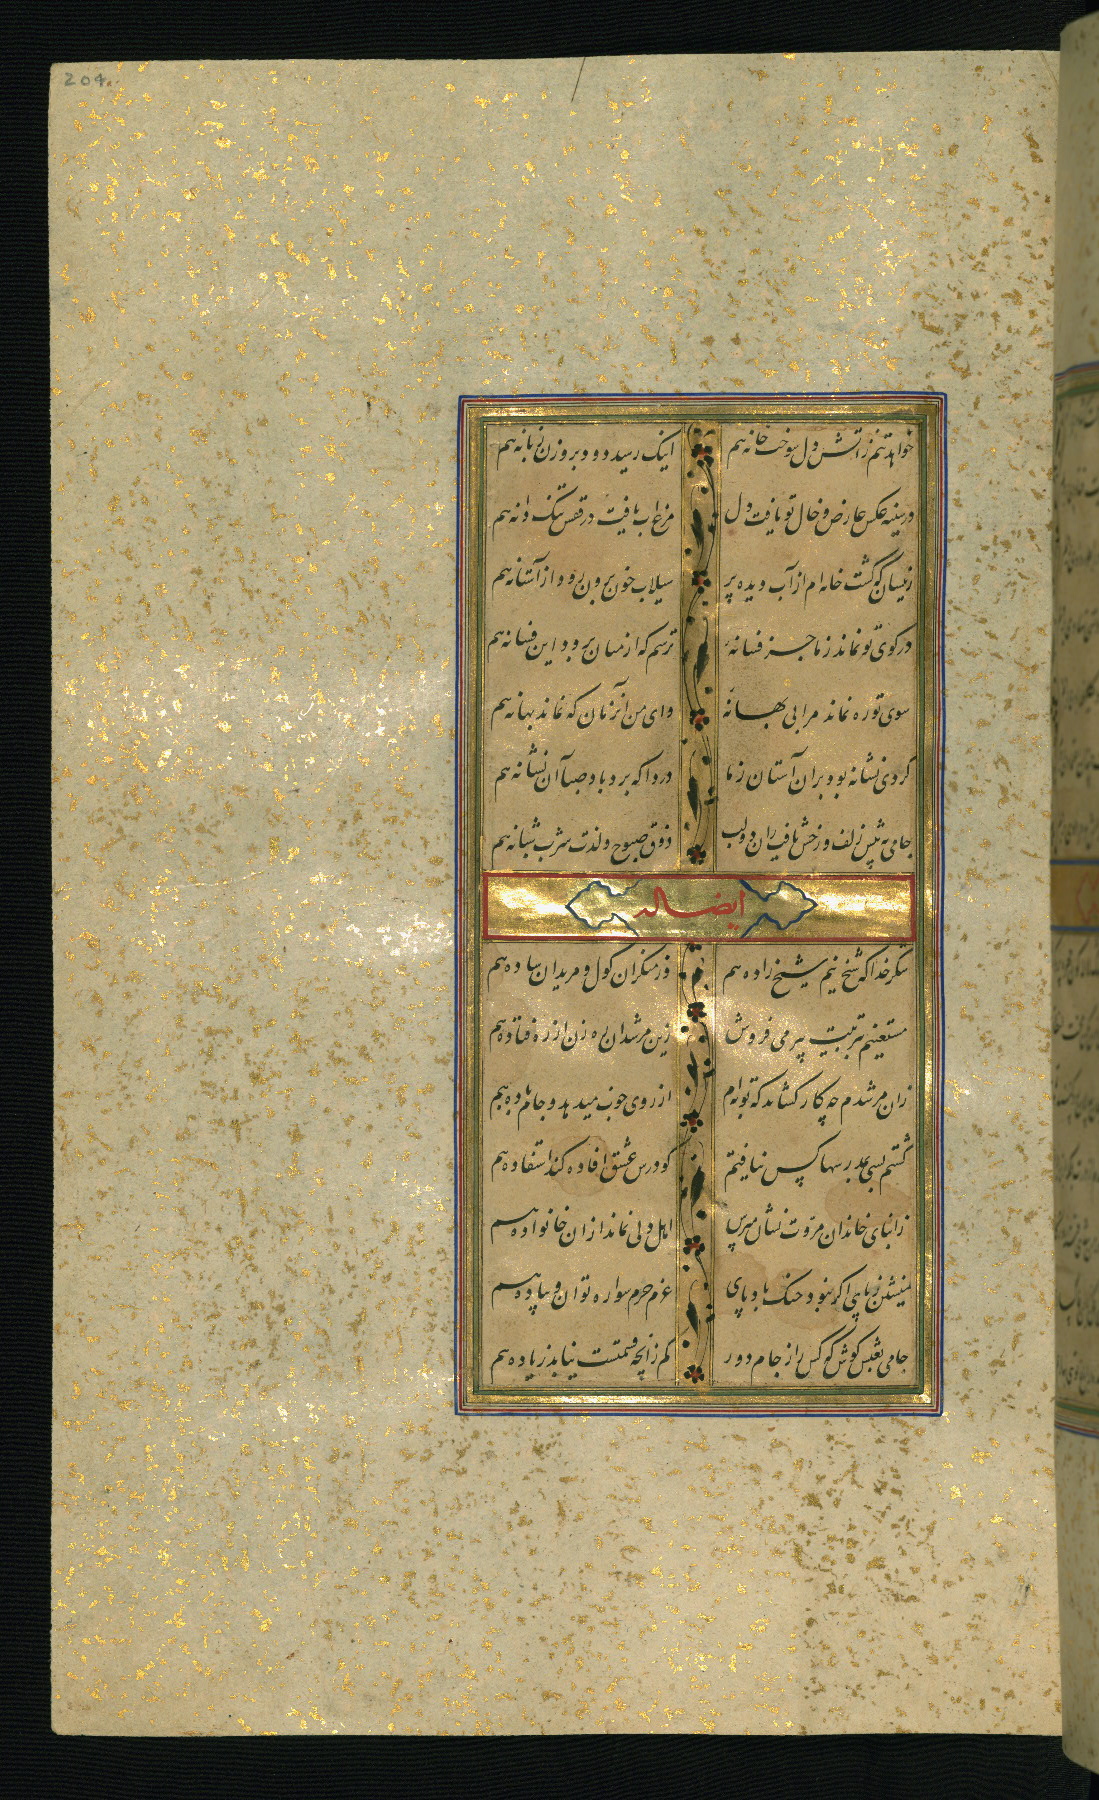 204
خواهد تنم ز آتش دل سوخت خانه هم
اینک رسید دود بروزن زبانه هم
در سینه عکس عارض و خال تو یافت دل
مرغ آب یافت در قفس تنگ دانه هم
زینسان که گشت خانه ام از آب دیده پر
سیلاب خون برون رود از آستانه هم
در کوی تو نماند ز ما جز فسانهٔ
ترسم که از میان برود این فسانه هم
سوی تو ره نماند مرا بی بهانهٔ
وای من آن زمان که نماند بهانه هم
گردی نشانه بود بران آستان ز ما
دردا که برد باد صبا آن نشانه هم
جامی به پیش زلف و رخش یافت زان دو لب
ذوق صبوح و لذت شرب شبانه هم
ایضا له
شکر خدا که شیخ نیم شیخ زاده هم
وز منکران کول و مریدان ساده هم
مستغنیم بتربیت پیر می فروش
زین مرشدان ره زن از ره فتاده هم
زان مرشدم چه کار گشاید که توبه ام
از روی خوب میدهد و جام باده هم
گشتم بسی بمدرسها کس نیافتم
کو درس عشق افاده کند استفاده هم
ز ابنای خاندان مروت نشان مپرس
اهل دلی نماند ازان خانواده هم
منشین ز پای اگر نبود خنگ باد پای
عزم حرم سواره توان و پیاده هم
جامی بعیش کوش که کس را ز جام دور
کم زانچه قسمتست نیاید زیاده هم